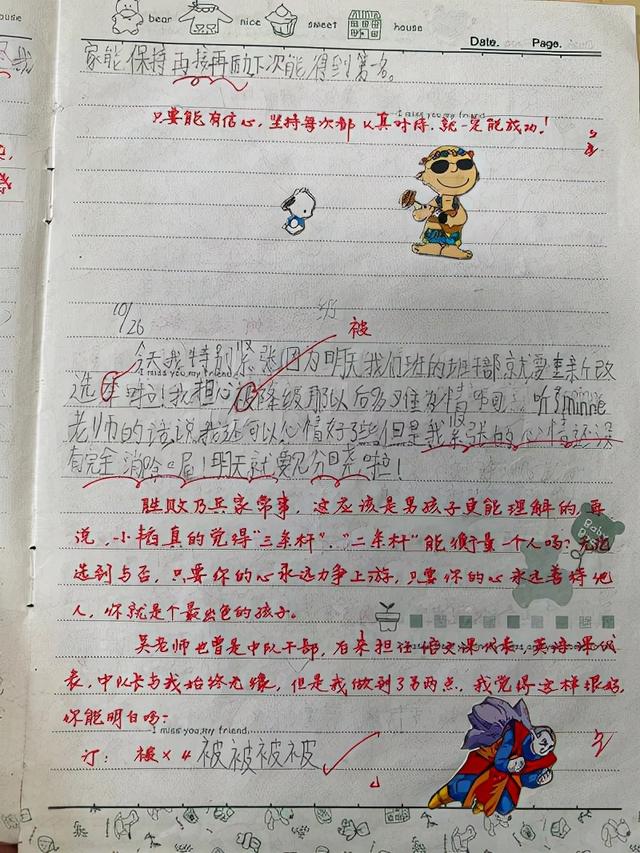 bear nice sweet house
Date. Page.
家能保持再接再励下次能得到第一名。
I miss you,my friend
只要能有信心,坚持每次都认真对待,就一定能成功!
10/26
被
今天我特别紧张因为明天我们班的班干部就要重新改
I miss you,my friend
选 啦!我担心 降级那以后多难为情呀! 听了minne
老师的话说我还可以心情好多些但是我紧张的心情还没
有完全消除喔!明天就要见分晓啦!
胜败乃兵家常事,这应该是男孩子更能理解的,再
说,小韬真的觉得"三条杆""二条杆"能衡量一个人吗?无论
选到与否,只要你的心永远力争上游,只要你的心永远善待他
人,你就是个最出色的孩子。
吴老师也曾是中队干部,后来担任语文课代表、英语课代
表,中队长与我始终无缘,但是我做到了另两点,我觉得这样很好,
你能明白吗?
I miss you,my friend.
订: 被×4 被被被被